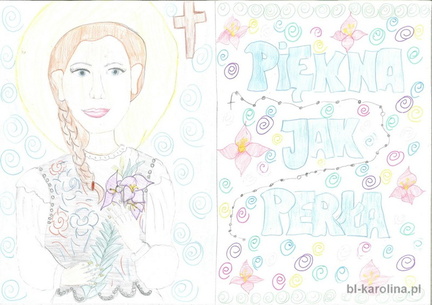 PIĘKNA
JAK
PERŁA
bl-karolina.pl